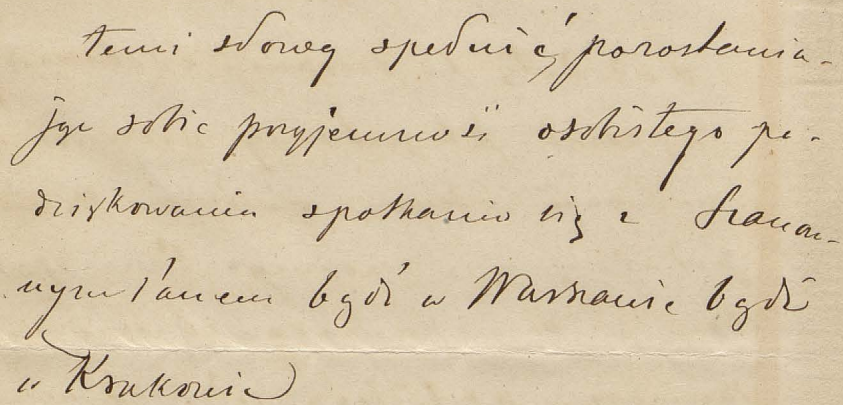 temi słowy spełnić, pozostawia-
jąc sobie przyjemność osobistego po-
dziękowania spotkaniu się z Szanow-
nym Panem bądź w Warszawie bądź
w Krakowie